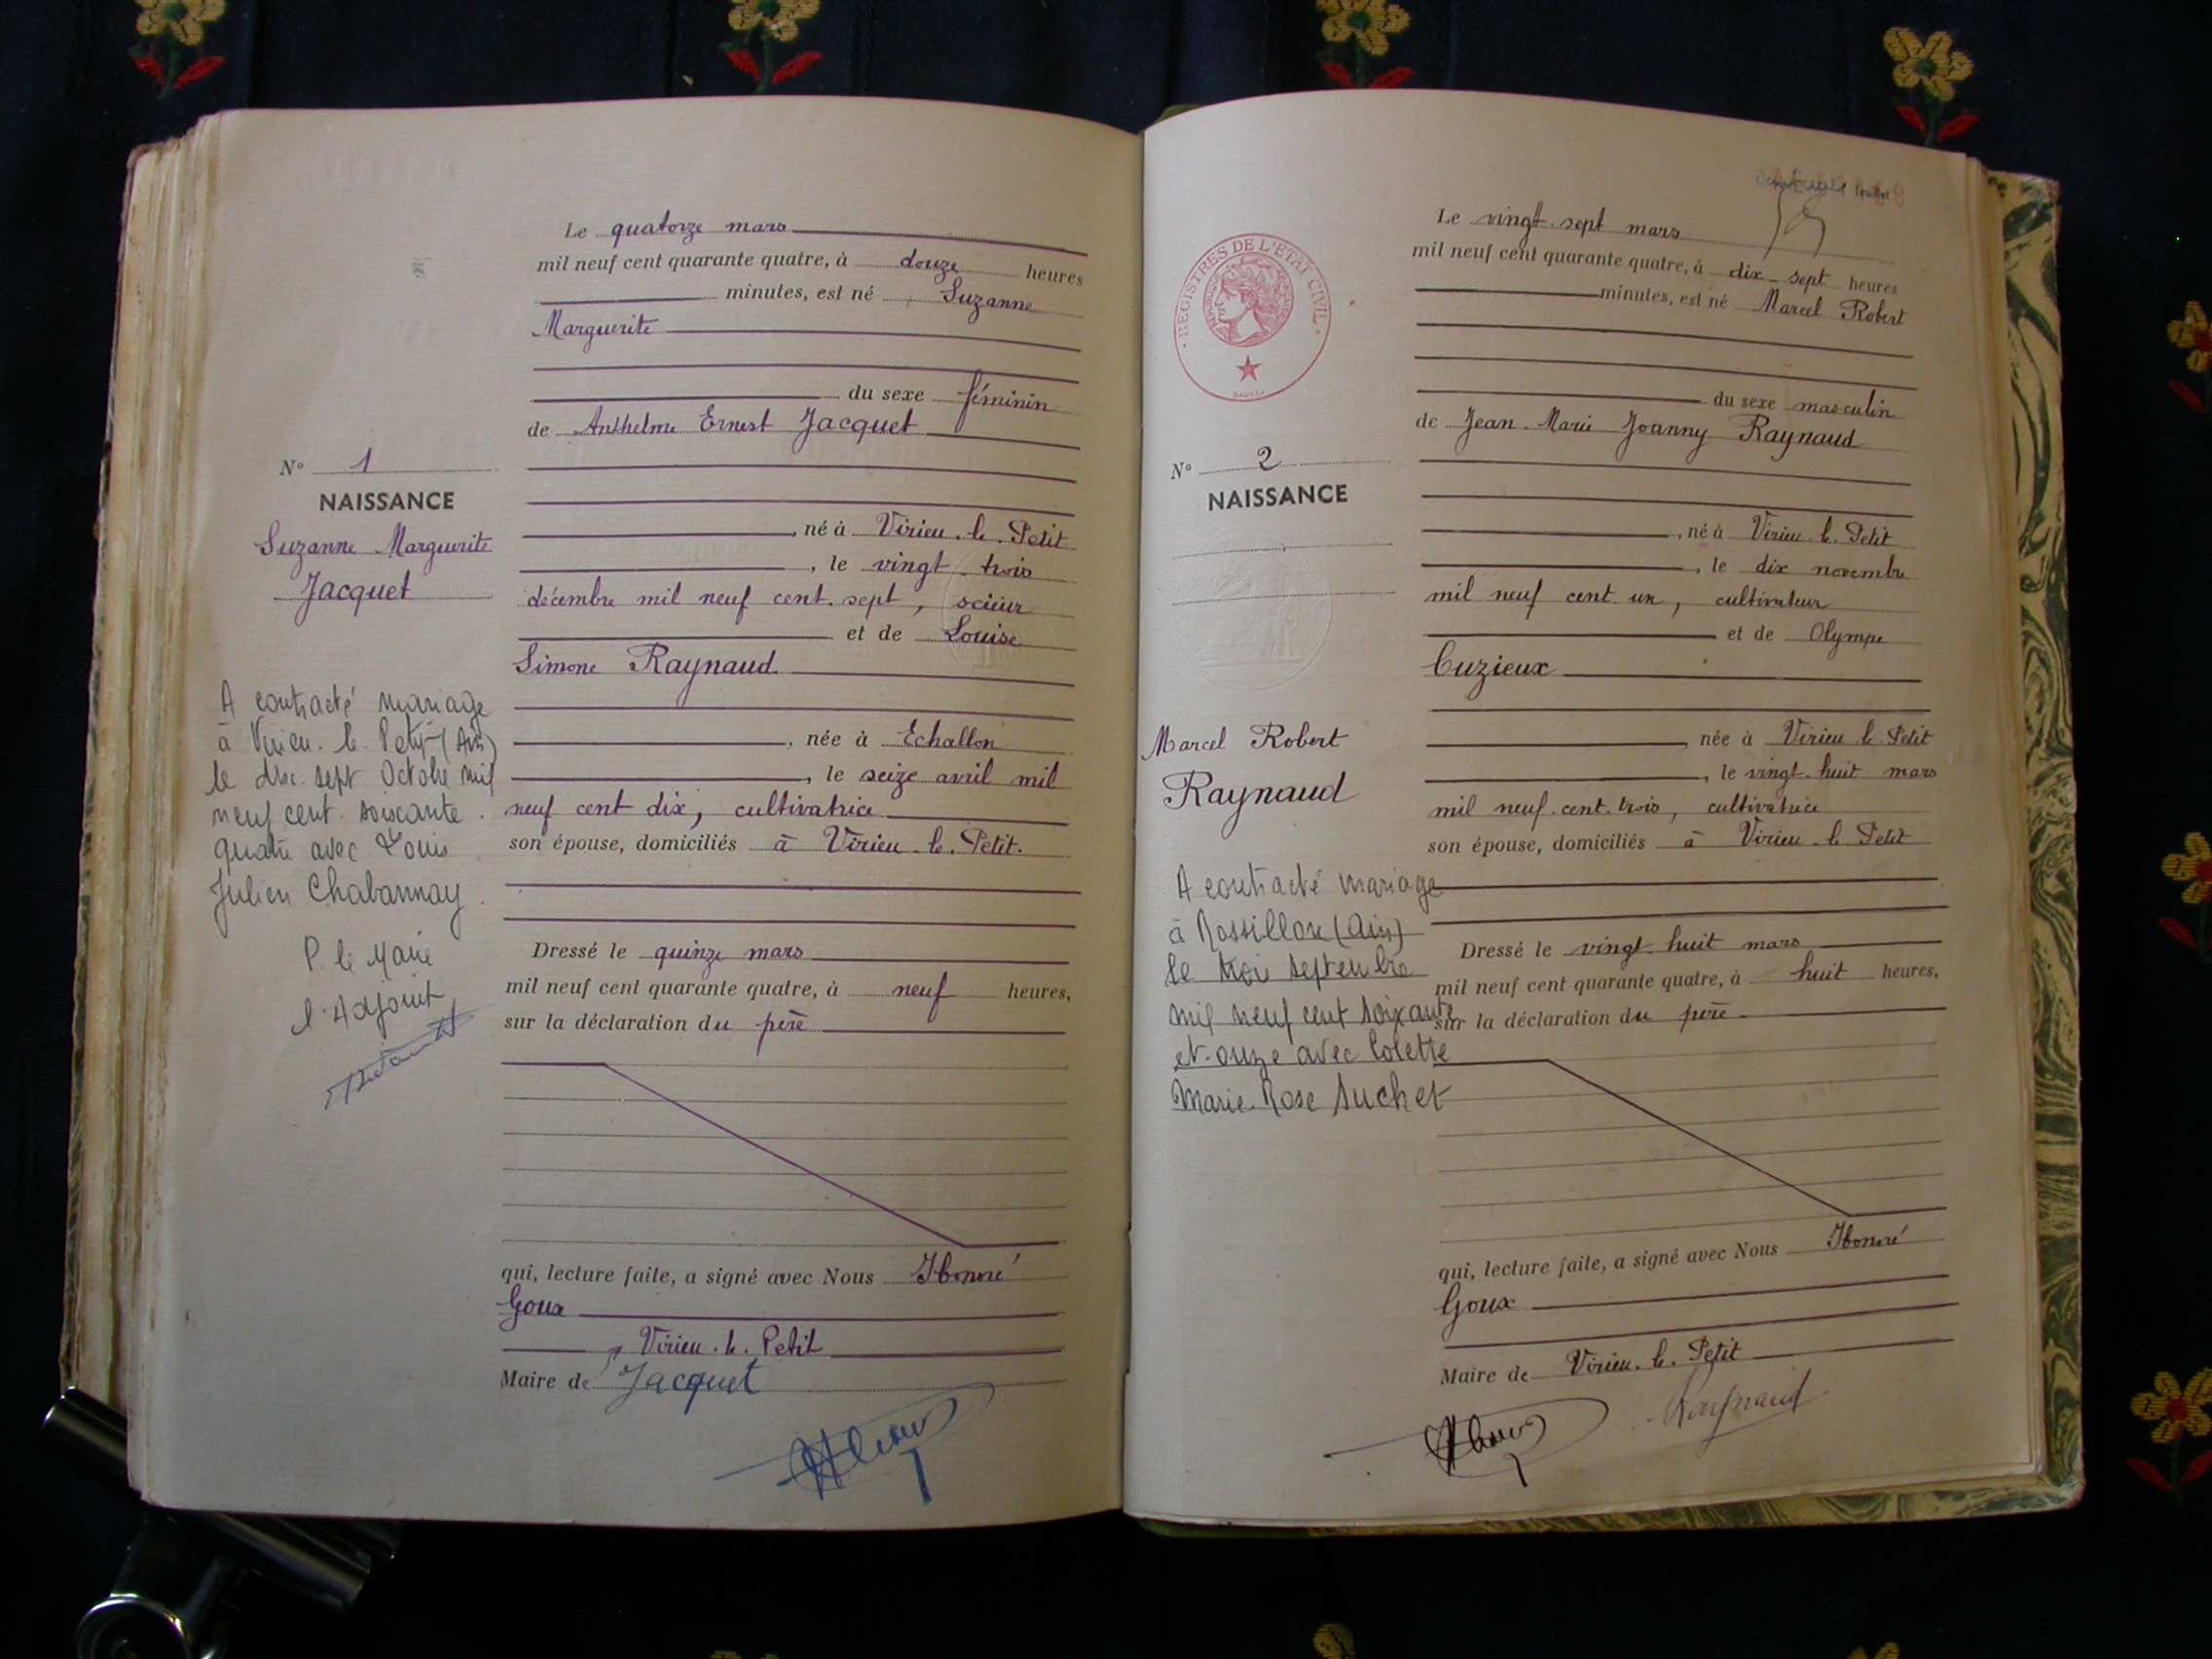 Le quatorze mars
mil neuf cent quarante quatre, à douze heures
minutes, est né Suzanne
Marguerite
du sexe féminin
de Anthelme Ernest Jacquet
N° 1
NAISSANCE
Suzanne Marguerite
Jacquet
, né à Virieu-le-Petit
, le vingt trois
décembre mil neuf cent sept, scieur
et de Louise
Simone Raynaud
, née à Echallon
, le seize avril mil
neuf cent dix, cultivatrice
son épouse, domiciliés à Virieu-le-Petit.
A contracté mariage
à Virieu-le-Petit (Ain)
le dix-sept Octobre mil
neuf cent soixante
quatre avec Louis
Julien Chabannay
P. le Maire
l'Adjoint
Dressé le quinze mars
mil neuf cent quarante quatre, à neuf heures,
sur la déclaration du père
qui, lecture faite, a signé avec Nous Honoré
Goux
Virieu-le-Petit
Maire de Jacquet
feuillet
REGISTRES DE L'ETAT CIVIL
Le vingt-sept mars
mil neuf cent quarante quatre, à dix-sept heures
minutes, est né Marcel Robert
du sexe masculin
de Jean-Marie Joanny Raynaud
N° 2
NAISSANCE
, né à Virieu-le-Petit
, le dix novembre
mil neuf cent un, cultivateur
et de Olympe
Cuzieux
Marcel Robert
Raynaud
, née à Virieu le Petit
, le vingt-huit mars
mil neuf cent trois, cultivatrice
son épouse, domiciliés à Virieu-le Petit
A contracté mariage
à Rossillon (Ain)
le trois septembre
mil neuf cent soixante
et-onze avec Colette
Marie-Rose Suchet
Dressé le vingt huit mars
mil neuf cent quarante quatre, à huit heures,
sur la déclaration du père
qui, lecture faite, a signé avec Nous Honoré
Goux
Maire de Virieu-le-Petit
Raynaud